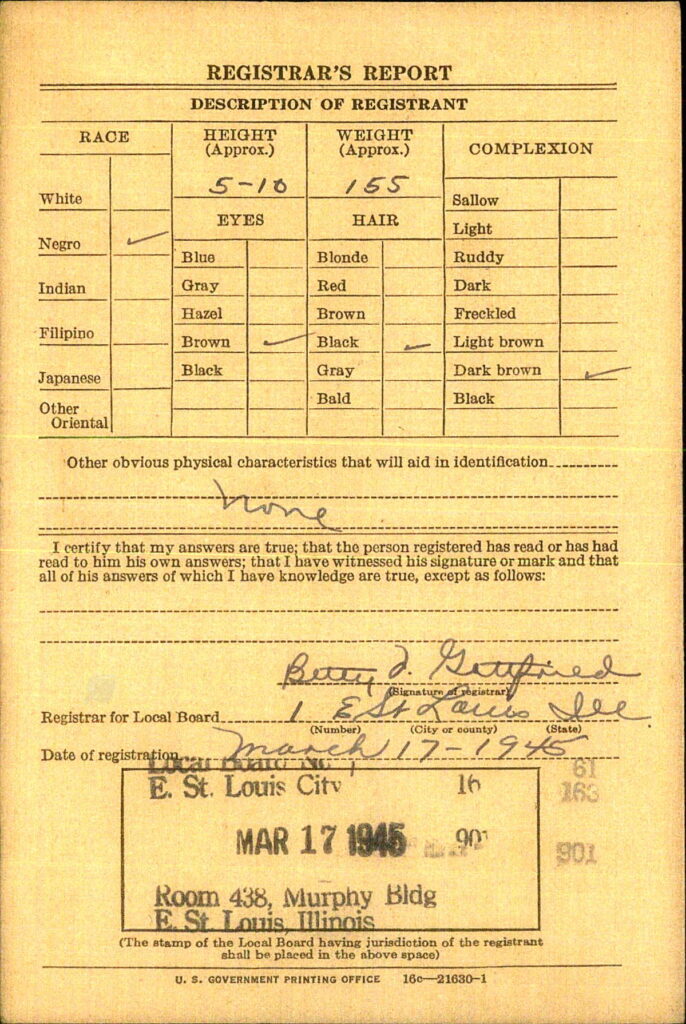 REGISTRAR'S REPORT
DESCRIPTION OF REGISTRANT
RACE
White
Negro ✓
Indian
Filipino
Japanese
Other
Oriental
HEIGHT
(Approx.)
5-10
EYES
Blue
Gray
Hazel
Brown ✓
Black
WEIGHT
(Approx.)
155
HAIR
Blonde
Red
Brown
Black ✓
Gray
Bald
COMPLEXION
Sallow
Light
Ruddy
Dark
Freckled
Light brown
Dark brown ✓
Black
Other obvious physical characteristics that will aid in identification
none
I certify that my answers are true; that the person registered has read or has had
read to him his own answers; that I have witnessed his signature or mark and that
all of his answers of which I have knowledge are true, except as follows:
Betty J. Gottfried
(Signature of registrar)
Registrar for Local Board 1 E St Louis Ill
(Number) (City or county) (State)
Date of registration March 17-1945
Local Board No. 1 61
E. St. Louis City 16 163
MAR 17 1945 901 901
Room 438, Murphy Bldg
E. St. Louis, Illinois
(The stamp of the Local Board having jurisdiction of the registrant
shall be placed in the above space)
U. S. GOVERNMENT PRINTING OFFICE 16c—21630-1